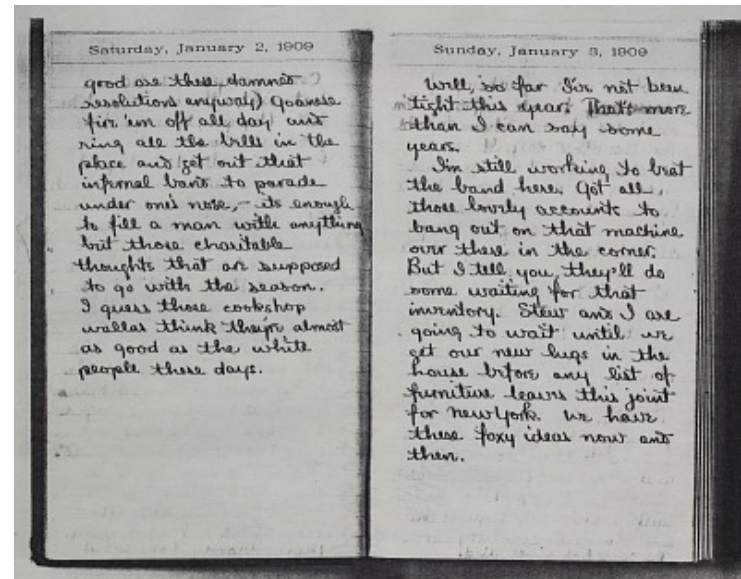 Saturday, January 2, 1909
good are these damned
resolutions anyway) Goanese
fir 'em off all day and
ring all the bells in the
place and get out that
infernal band to parade
under one's nose,- its enough
to fill a man with anything
but those charitable
thoughts that are supposed
to go with the season.
I guess those cookshop
wallas think they're almost
as good as the white
people these days.
Sunday, January 3, 1909
Well, so far I've not been
tight this year. That's more
than I can say some
years.
I'm still working to beat
the band here. Got all
those lovely accounts to
bang out on that machine
over there in the corner.
But I tell you, they'll do
some waiting for that
inventory. Stew and I are
going to wait until we
get our new lugs in the
house before any list of
furniture leaves this joint
for New York. We have
these foxy ideas now and
then.